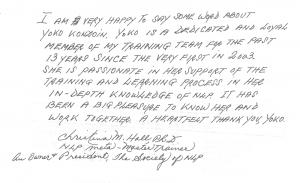 I AM VERY HAPPY TO SAY SOME WORD ABOUT
YOKO. YOKO IS A DEDICATED AND LOYAL
MEMBER OF MY TRAINING TEAM FOR THE PAST
13 YEARS SINCE THE VERY FIRST IN 2003.
SHE IS PASSIONATE IN HER SUPPORT OF THE
TRAINING AND LEARNING PROCESS IN HER
IN-DEPTH KNOWLEDGE OF NLP. IT HAS
BEEN A BIG PLEASURE TO KNOW HER AND
WORK TOGETHER. A HEARTFELT THANK YOU, YOKO.
Christina M. Hall, Ph.D.
NLP Meta-Master Trainer
Owner & President, The Society of NLP